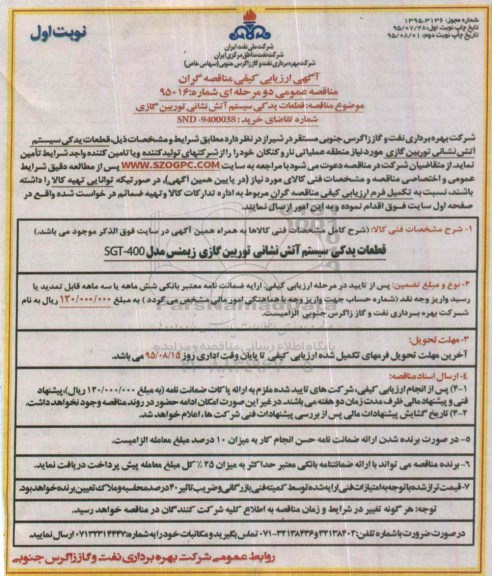 شماره مجوز: ۱۳۹۵.۳۱۳۶
تاریخ چاپ نوبت اول: ۹۵/۰۷/۲۸
تاریخ چاپ نوبت دوم: ۹۵/۰۸/۰۱
نوبت اول
شرکت ملی نفت ایران
شرکت نفت مناطق مرکزی ایران
شرکت بهره برداری نفت و گاز زاگرس جنوبی (سهامی خاص)
آگهی ارزیابی کیفی مناقصه گران
مناقصه عمومی دو مرحله ای شماره: ۹۵۰۱۶
موضوع مناقصه: قطعات یدکی سیستم آتش نشانی توربین گازی
شماره تقاضای خرید: SND -9400038
شرکت بهره برداری نفت و گاز زاگرس جنوبی مستقر در شیراز در نظر دارد مطابق شرایط و مشخصات ذیل، قطعات یدکی سیستم
آتش نشانی توربین گازی مورد نیاز منطقه عملیاتی نار و کنگان خود را از شرکتهای تولید کننده و یا تامین کننده واجد شرایط تأمین
نماید. از متقاضیان شرکت در مناقصه دعوت می شود با مراجعه به سایت WWW.SZOGPC.COM پس از مطالعه دقیق شرایط
عمومی و اختصاصی مناقصه و مشخصات فنی کالای مورد نیاز (در پایین همین آگهی)، در صورتیکه توانایی تهیه کالا را داشته
باشند، نسبت به تکمیل فرم ارزیابی کیفی مناقصه گران مربوط به اداره تدارکات کالا و تهیه ضمائم در خواست شده واقع در
صفحه اول سایت فوق اقدام نموده و به این امور ارسال نمایند.
۱- شرح مشخصات فنی کالا: (شرح کامل مشخصات فنی کالاها به همراه همین آگهی در سایت فوق الذکر موجود می باشد.)
قطعات یدکی سیستم آتش نشانی توربین گازی زیمنس مدل SGT-400
۲- نوع و مبلغ تضمین: پس از تایید در مرحله ارزیابی کیفی، ارایه ضمانت نامه معتبر بانکی شش ماهه یا سه ماهه قابل تمدید یا
رسید واریز وجه نقد (شماره حساب جهت واریز وجه با هماهنگی امور مالی مشخص می گردد) به مبلغ ۱۲۰/۰۰۰/۰۰۰ ریال به نام
شرکت بهره برداری نفت و گاز زاگرس جنوبی الزامیست.
ParsNamadData
پایگاه اطلاع رسانی مناقصه و مزایده
۳- مهلت تحویل:
آخرین مهلت تحویل فرمهای تکمیل شده ارزیابی کیفی تا پایان وقت اداری روز ۹۵/۰۸/۱۵ می باشد.
۴- ارسال اسناد مناقصه:
۴-۱) پس از انجام ارزیابی کیفی، شرکت های تایید شده ملزم به ارائه پاکات ضمانت نامه (به مبلغ ۱۲۰/۰۰۰/۰۰۰ ریال)، پیشنهاد
فنی و پیشنهاد مالی ظرف مدت زمان دو هفته می باشند. در غیر این صورت امکان ادامه حضور در روند مناقصه وجود نخواهد داشت.
۴-۲) تاریخ گشایش پیشنهادات مالی پس از بررسی پیشنهادات فنی شرکت ها، اعلام خواهد شد.
۵- در صورت برنده شدن ارائه ضمانت نامه حسن انجام کار به میزان ۱۰ درصد مبلغ معامله الزامیست.
۶- برنده مناقصه می تواند با ارائه ضمانتنامه بانکی معتبر حداکثر به میزان ۲۵٪ کل مبلغ معامله پیش پرداخت دریافت نماید.
۷- قیمت تراز شده با توجه به امتیازات فنی ارایه شده توسط کمیته فنی بازرگانی و ضریب تاثیر ۴۰ درصد محاسبه و ملاک تعیین برنده خواهد بود.
توجه: هر گونه تغییر در شرایط و زمان مناقصه به اطلاع کلیه شرکت کنندگان در مناقصه خواهد رسید.
در صورت ضرورت با شماره تلفن: ۳۲۱۳۸۴۰۲ و ۳۲۱۳۸۴۳۶-۰۷۱ تماس بگیرید و مکاتبات خود را به شماره: ۰۷۱۳۲۳۱۴۴۳۷ ارسال نمایید.
روابط عمومی شرکت بهره برداری نفت و گاز زاگرس جنوبی